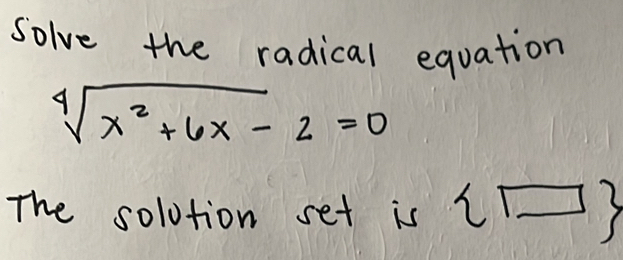 Solve the radical equation
∜(x² + 6x) - 2 = 0
The solution set is {☐}